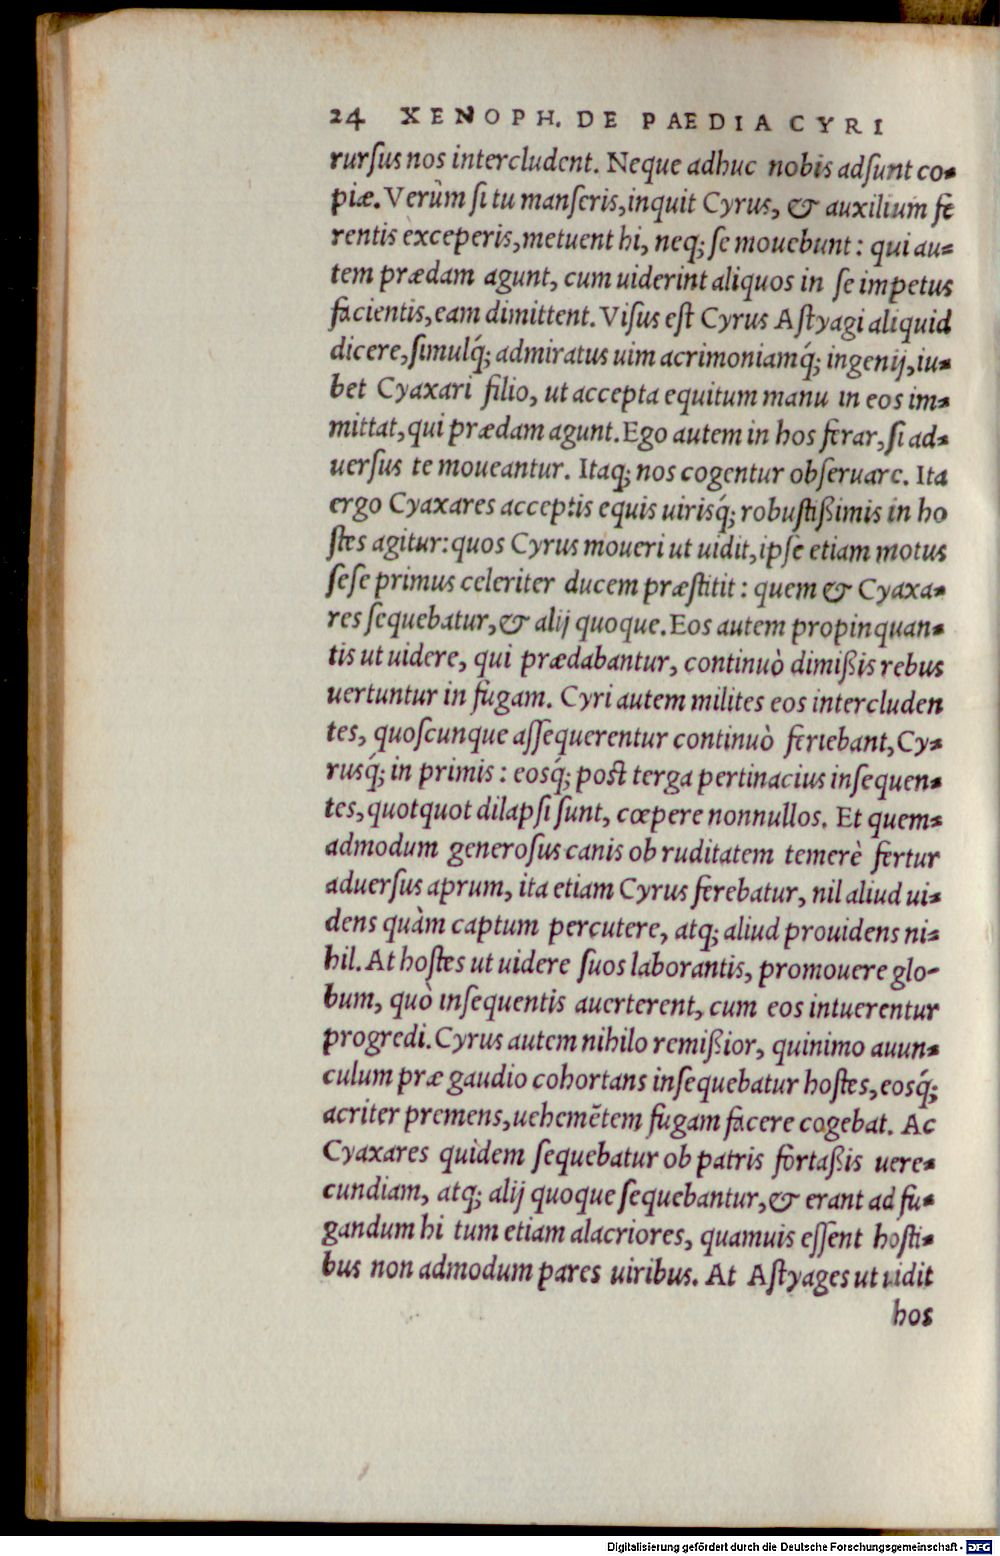 24 XENOPH. DE PAEDIA CYRI
rursus nos intercludent. Neque adhuc nobis adsunt co-
piæ. Verùm si tu manseris, inquit Cyrus, & auxilium fe
rentis exceperis, metuent hi, neq; se mouebunt: qui au-
tem prædam agunt, cum uiderint aliquos in se impetus
facientis, eam dimittent. Visus est Cyrus Astyagi aliquid
dicere, simulq́; admiratus uim acrimoniamq́; ingenij, iu-
bet Cyaxari filio, ut accepta equitum manu in eos im-
mittat, qui prædam agunt. Ego autem in hos ferar, si ad-
uersus te moueantur. Itaq; nos cogentur obseruare. Ita
ergo Cyaxares acceptis equis uirisq́; robustißimis in ho
stes agitur: quos Cyrus moueri ut uidit, ipse etiam motus
sese primus celeriter ducem præstitit: quem & Cyaxa-
res sequebatur, & alij quoque. Eos autem propinquan-
tis ut uidere, qui prædabantur, continuò dimißis rebus
uertuntur in fugam. Cyri autem milites eos intercluden
tes, quoscunque assequerentur continuò feriebant, Cy-
rusq́; in primis: eosq́; post terga pertinacius insequen-
tes, quotquot dilapsi sunt, cœpere nonnullos. Et quem-
admodum generosus canis ob ruditatem temerè fertur
aduersus aprum, ita etiam Cyrus ferebatur, nil aliud ui-
dens quàm captum percutere, atq; aliud prouidens ni-
hil. At hostes ut uidere suos laborantis, promouere glo-
bum, quò insequentis auerterent, cum eos intuerentur
progredi. Cyrus autem nihilo remißior, quinimo auun-
culum præ gaudio cohortans insequebatur hostes, eosq́;
acriter premens, uehemẽtem fugam facere cogebat. Ac
Cyaxares quidem sequebatur ob patris fortaßis uere-
cundiam, atq; alij quoque sequebantur, & erant ad fu-
gandum hi tum etiam alacriores, quamuis essent hosti-
bus non admodum pares uiribus. At Astyages ut uidit
hos
Digitalisierung gefördert durch die Deutsche Forschungsgemeinschaft - DFG